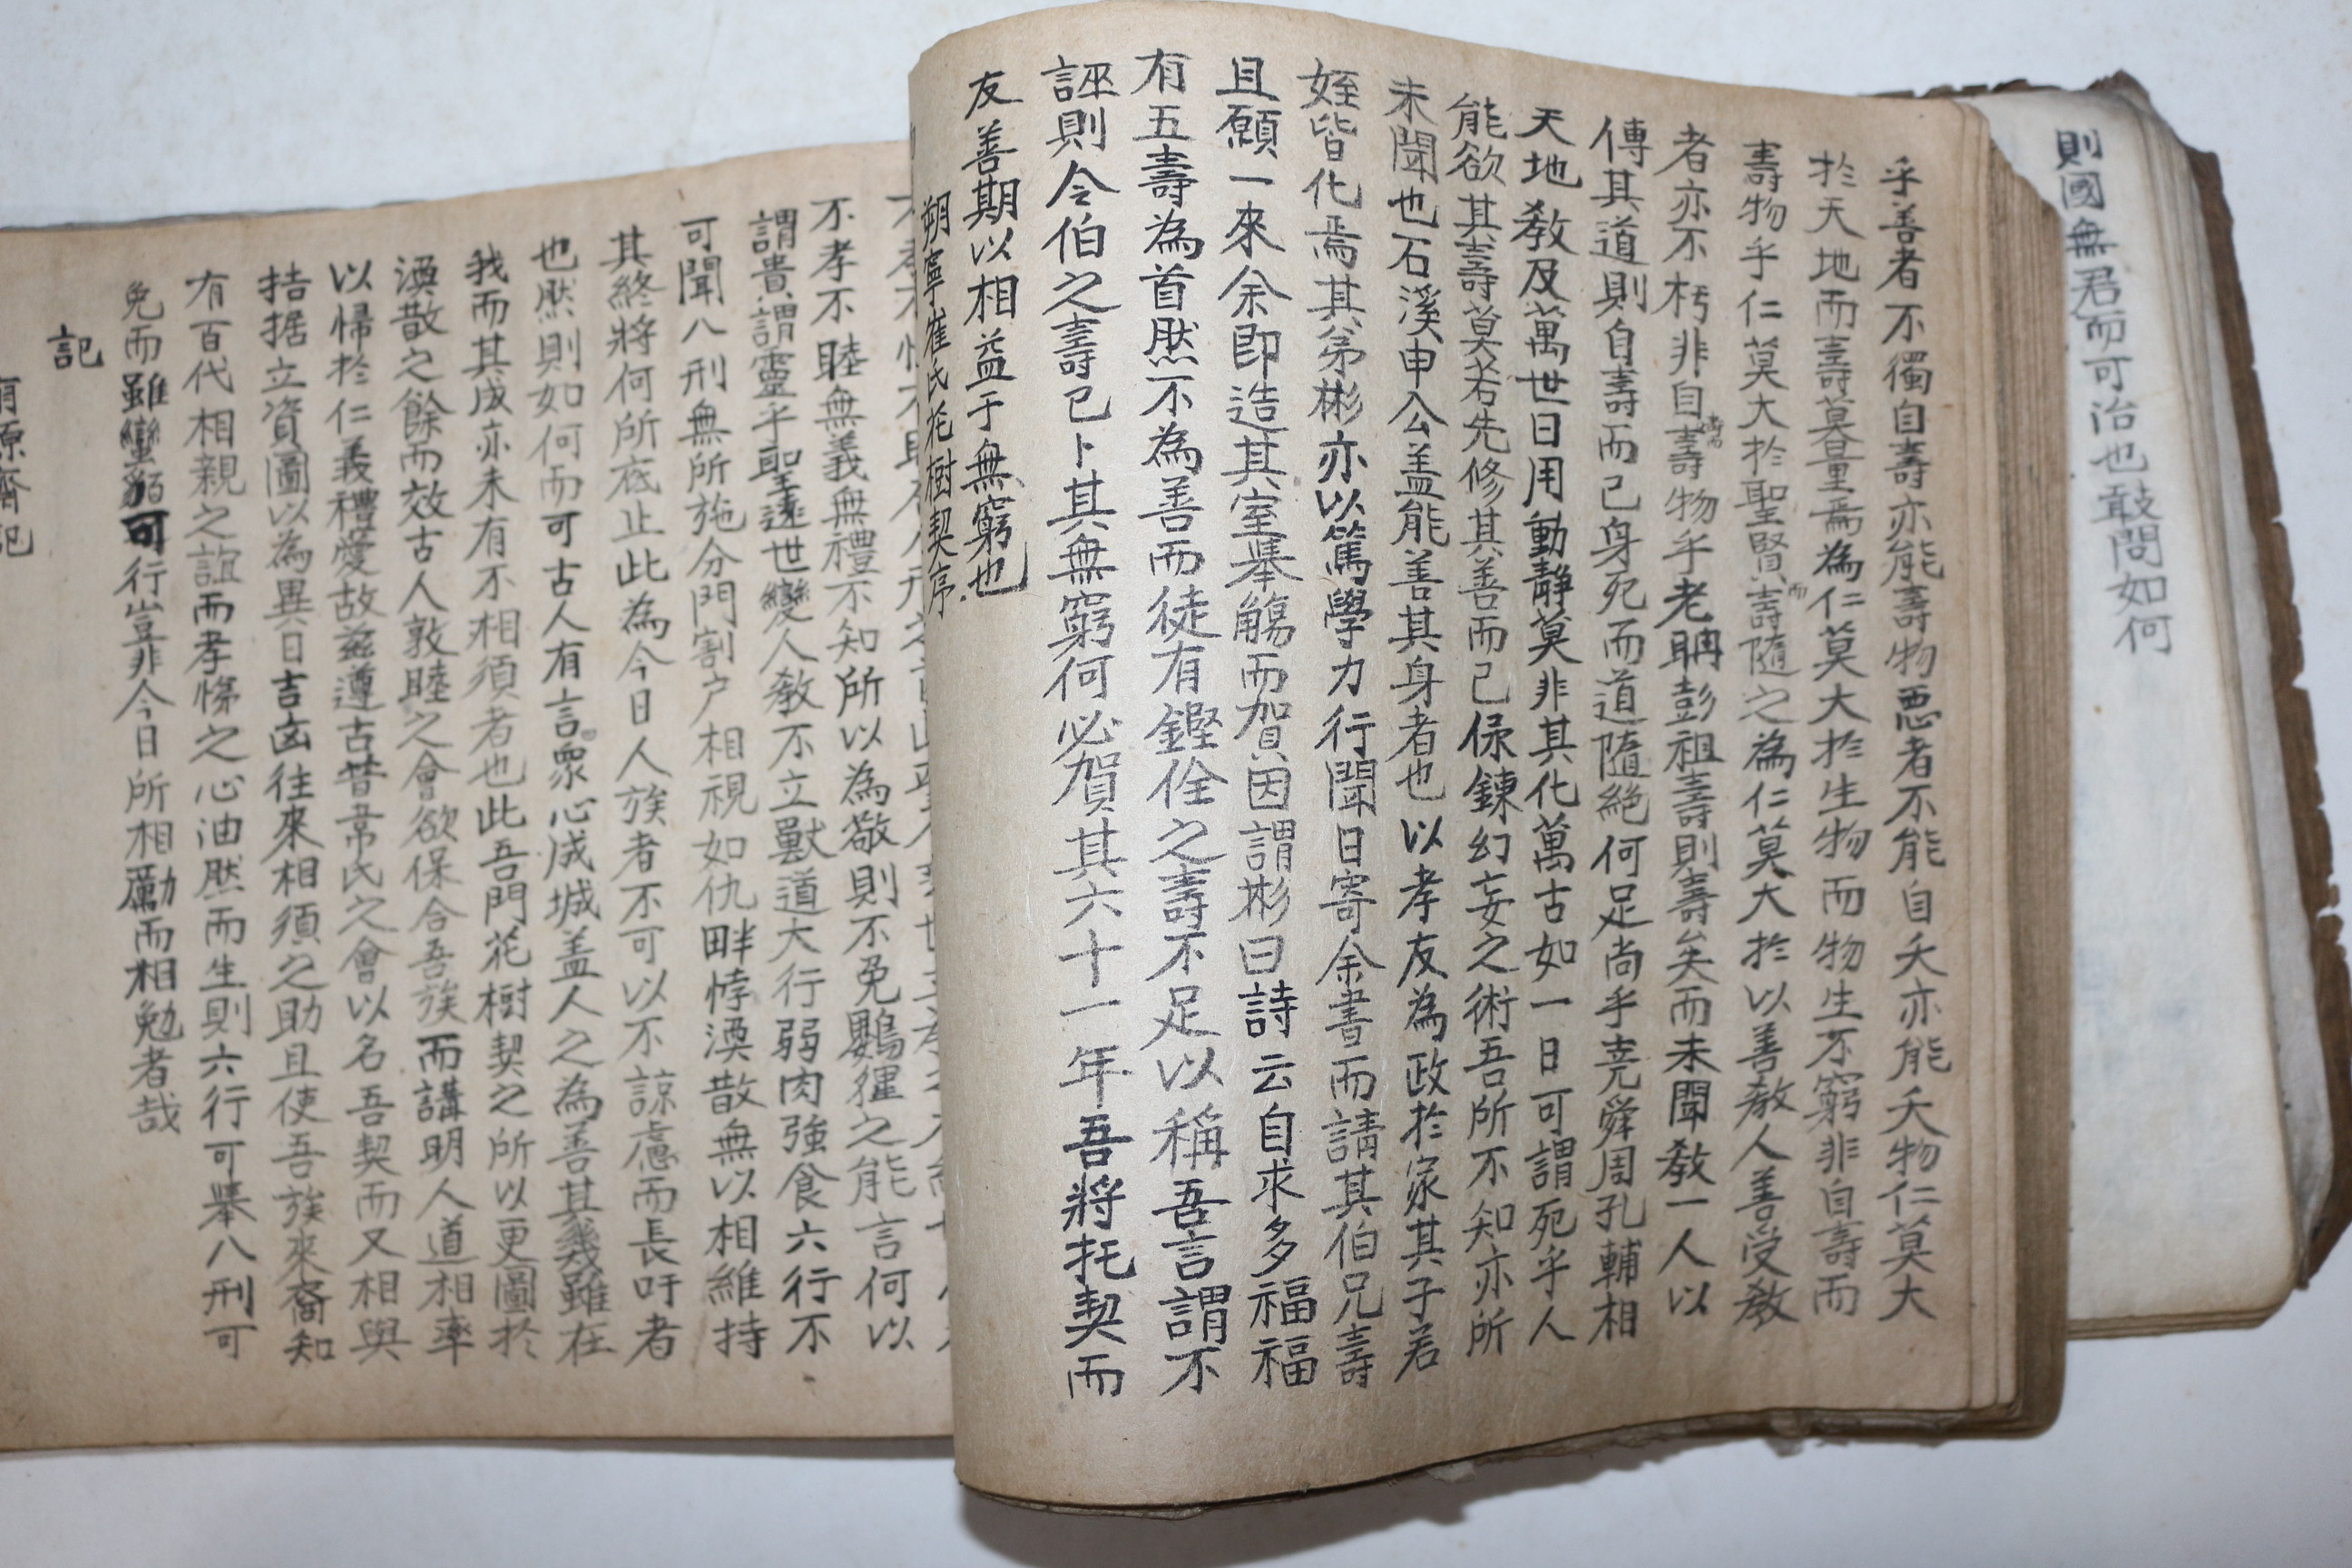 則國無君而可治也敢問如何
乎善者不獨自壽亦能壽物悪者不能自夭亦能夭物仁莫大
於天地而壽莫量焉為仁莫大於生物而物生不窮非自壽而
壽物乎仁莫大於聖賢而壽隨之為仁莫大於以善教人善受教
者亦不朽非自壽物乎老聃彭祖壽則壽矣而未聞教一人以
傳其道則自壽而已身死而道隨絕何足尚乎堯舜周孔輔相
天地教及萬世日用動靜莫非其化萬古如一日可謂死乎人
能欲其壽莫若先修其善而已保鍊幻妄之術吾所不知亦所
未聞也石溪申公盖能善其身者也以孝友為政於家其子若
姪皆化焉其弟彬亦以篤學力行聞日寄余書而請其伯兄壽
且願一來余即造其室舉觴而賀因謂彬曰詩云自求多福福
有五壽為首然不為善而徒有鏗佺之壽不足以稱吾言謂不
誣則令伯之壽已卜其無窮何必賀其六十一年吾將托契而
友善期以相益于無窮也
朔寧崔氏花樹契序
不孝不睦無義無禮不知所以為敬則不免鸚猩之能言何以
謂貴謂靈乎聖遠世變人教不立獸道大行弱肉強食六行不
可聞八刑無所施分門割户相視如仇畔悖渙散無以相維持
其終將何所底止此為今日人族者不可以不諒慮而長吁者
也然則如何而可古人有言曰衆心成城盖人之為善其幾雖在
我而其成亦未有不相須者也此吾門花樹契之所以更圖於
渙散之餘而效古人敦睦之會欲保合吾族而講明人道相率
以帰於仁義禮愛故茲遵古昔韋氏之會以名吾契而又相與
拮据立資圖以為異日吉凶往來相須之助且使吾族來裔知
有百代相親之誼而孝悌之心油然而生則六行可舉八刑可
免而雖蠻貊可行豈非今日所相勵而相勉者哉
記
源齋記